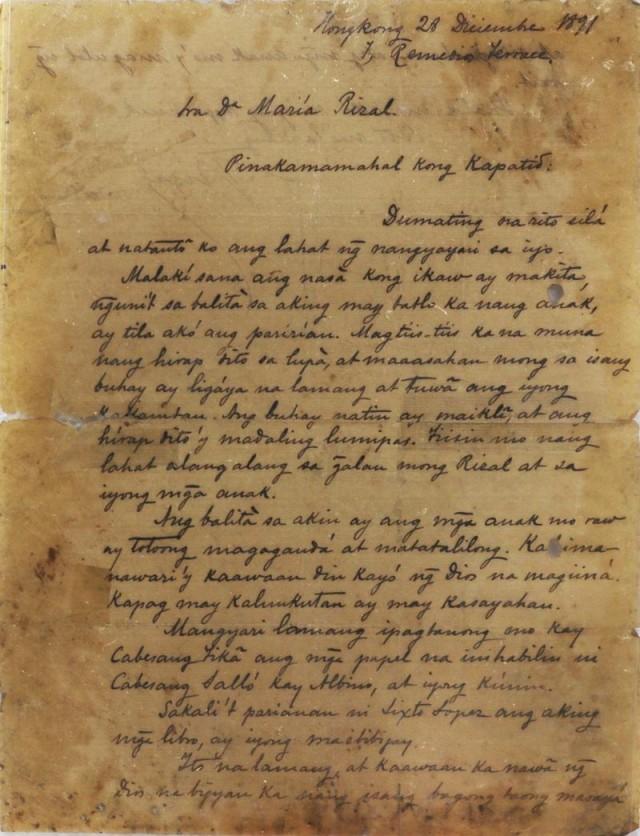 Hongkong 28 Diciembre 1891
7, Remedios Terrace.
Sra Dª María Rizal.
Pinakamamahal kong Kapatid:
Dumating na rito silá
at natantô ko ang lahat ng̃ nangyayari sa iyo.
Malakí sana ang nasà kong ikaw ay makita,
ng̃uni't sa balità sa aking may tatlo ka nang anák,
ay tila akó ang paririan. Magtiis-tiis ka na muna
nang hirap dito sa lupà, at maaasahan mong sa isang
buhay ay ligáya na lamang at tuwâ ang iyong
kakamtan. Ang buhay natin ay maiklî, at ang
hírap dito'y madaling lumipas. Tiisin mo nang
lahat alang alang sa ng̃alan mong Rizal at sa
iyong mg̃a anak.
Ang balità sa akin ay ang mg̃a anak mo raw
ay totoong magagandá at matatalilong. Kasima
nawari'y kaawaan din kayó ng̃ Dios na magiiná.
Kapag may kalunkutan ay may kasayahan.
Mangyari lamang ipagtanong mo kay
Cabesang Tikâ ang mg̃a papel na inihabilin ni
Cabesang Salló kay Albino, at iyong kúnin.
Sakali't parianan ni Sixto Lopez ang aking
mg̃a libro, ay iyong maibibigay.
Itó na lamang, at kaawaan ka nawâ ng̃
Dios na bigyan ka nang isang bagong taong masayá